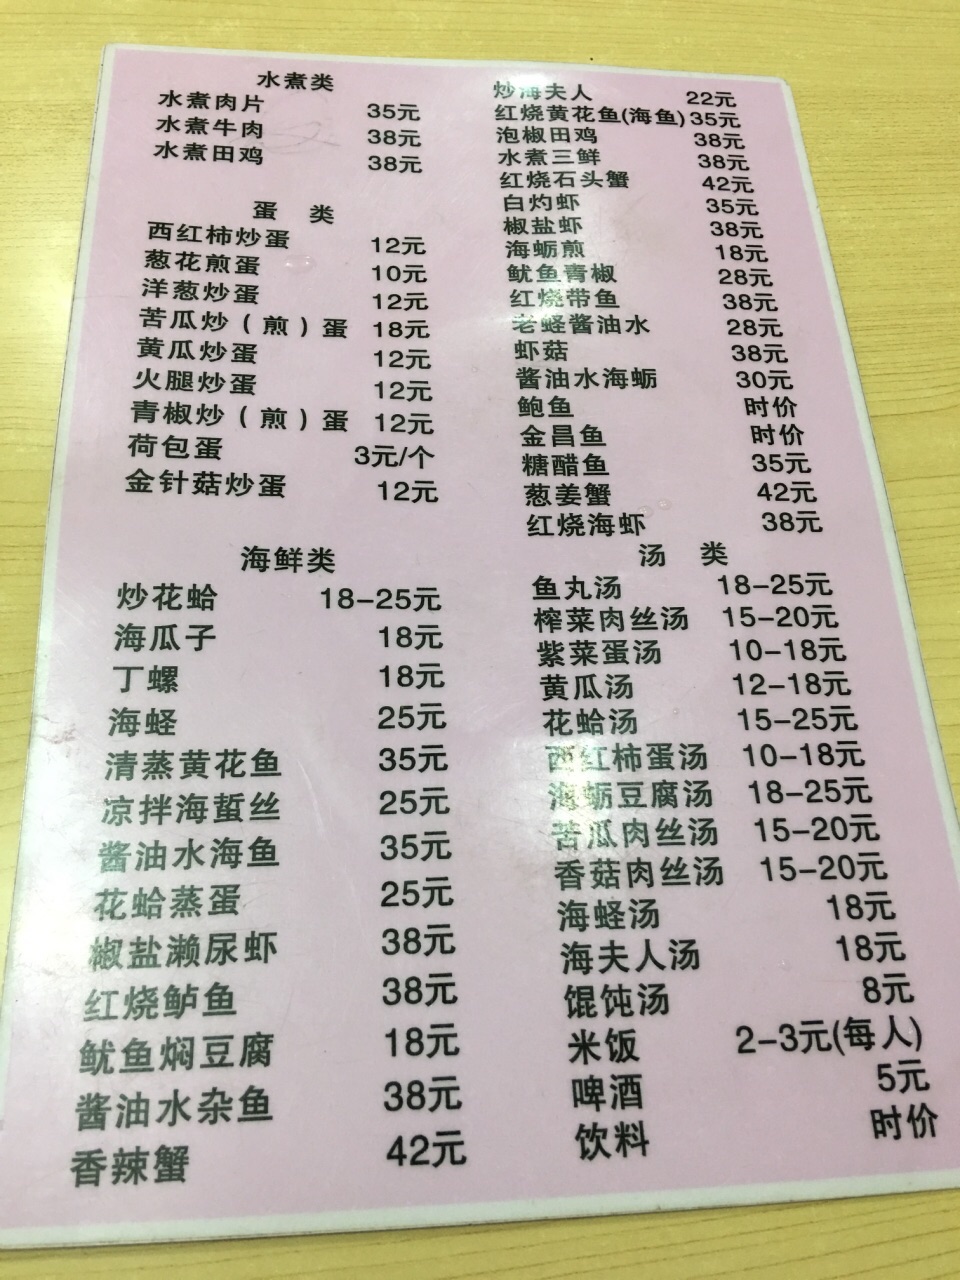 水煮类
水煮肉片 35元
水煮牛肉 38元
水煮田鸡 38元
蛋 类
西红柿炒蛋 12元
葱花煎蛋 10元
洋葱炒蛋 12元
苦瓜炒（煎）蛋 18元
黄瓜炒蛋 12元
火腿炒蛋 12元
青椒炒（煎）蛋 12元
荷包蛋 3元/个
金针菇炒蛋 12元
海鲜类
炒花蛤 18-25元
海瓜子 18元
丁螺 18元
海蛏 25元
清蒸黄花鱼 35元
凉拌海蜇丝 25元
酱油水海鱼 35元
花蛤蒸蛋 25元
椒盐濑尿虾 38元
红烧鲈鱼 38元
鱿鱼焖豆腐 18元
酱油水杂鱼 38元
香辣蟹 42元
炒海夫人 22元
红烧黄花鱼(海鱼) 35元
泡椒田鸡 38元
水煮三鲜 38元
红烧石头蟹 42元
白灼虾 35元
椒盐虾 38元
海蛎煎 18元
鱿鱼青椒 28元
红烧带鱼 38元
老蛏酱油水 28元
虾菇 38元
酱油水海蛎 30元
鲍鱼 时价
金昌鱼 时价
糖醋鱼 35元
葱姜蟹 42元
红烧海虾 38元
汤 类
鱼丸汤 18-25元
榨菜肉丝汤 15-20元
紫菜蛋汤 10-18元
黄瓜汤 12-18元
花蛤汤 15-25元
西红柿蛋汤 10-18元
海蛎豆腐汤 18-25元
苦瓜肉丝汤 15-20元
香菇肉丝汤 15-20元
海蛏汤 18元
海夫人汤 18元
馄饨汤 8元
米饭 2-3元(每人)
啤酒 5元
饮料 时价